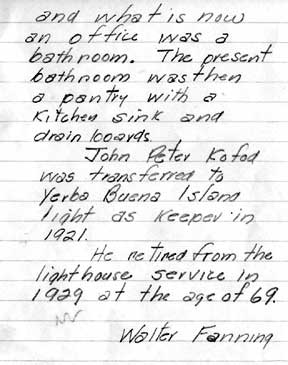 and what is now
an office was a
bathroom. The present
bathroom was then
a pantry with a
kitchen sink and
drain boards.
John Peter Kofod
was transferred to
Yerba Buena Island
light as keeper in
1921.
He retired from the
lighthouse service in
1929 at the age of 69.
Walter Fanning